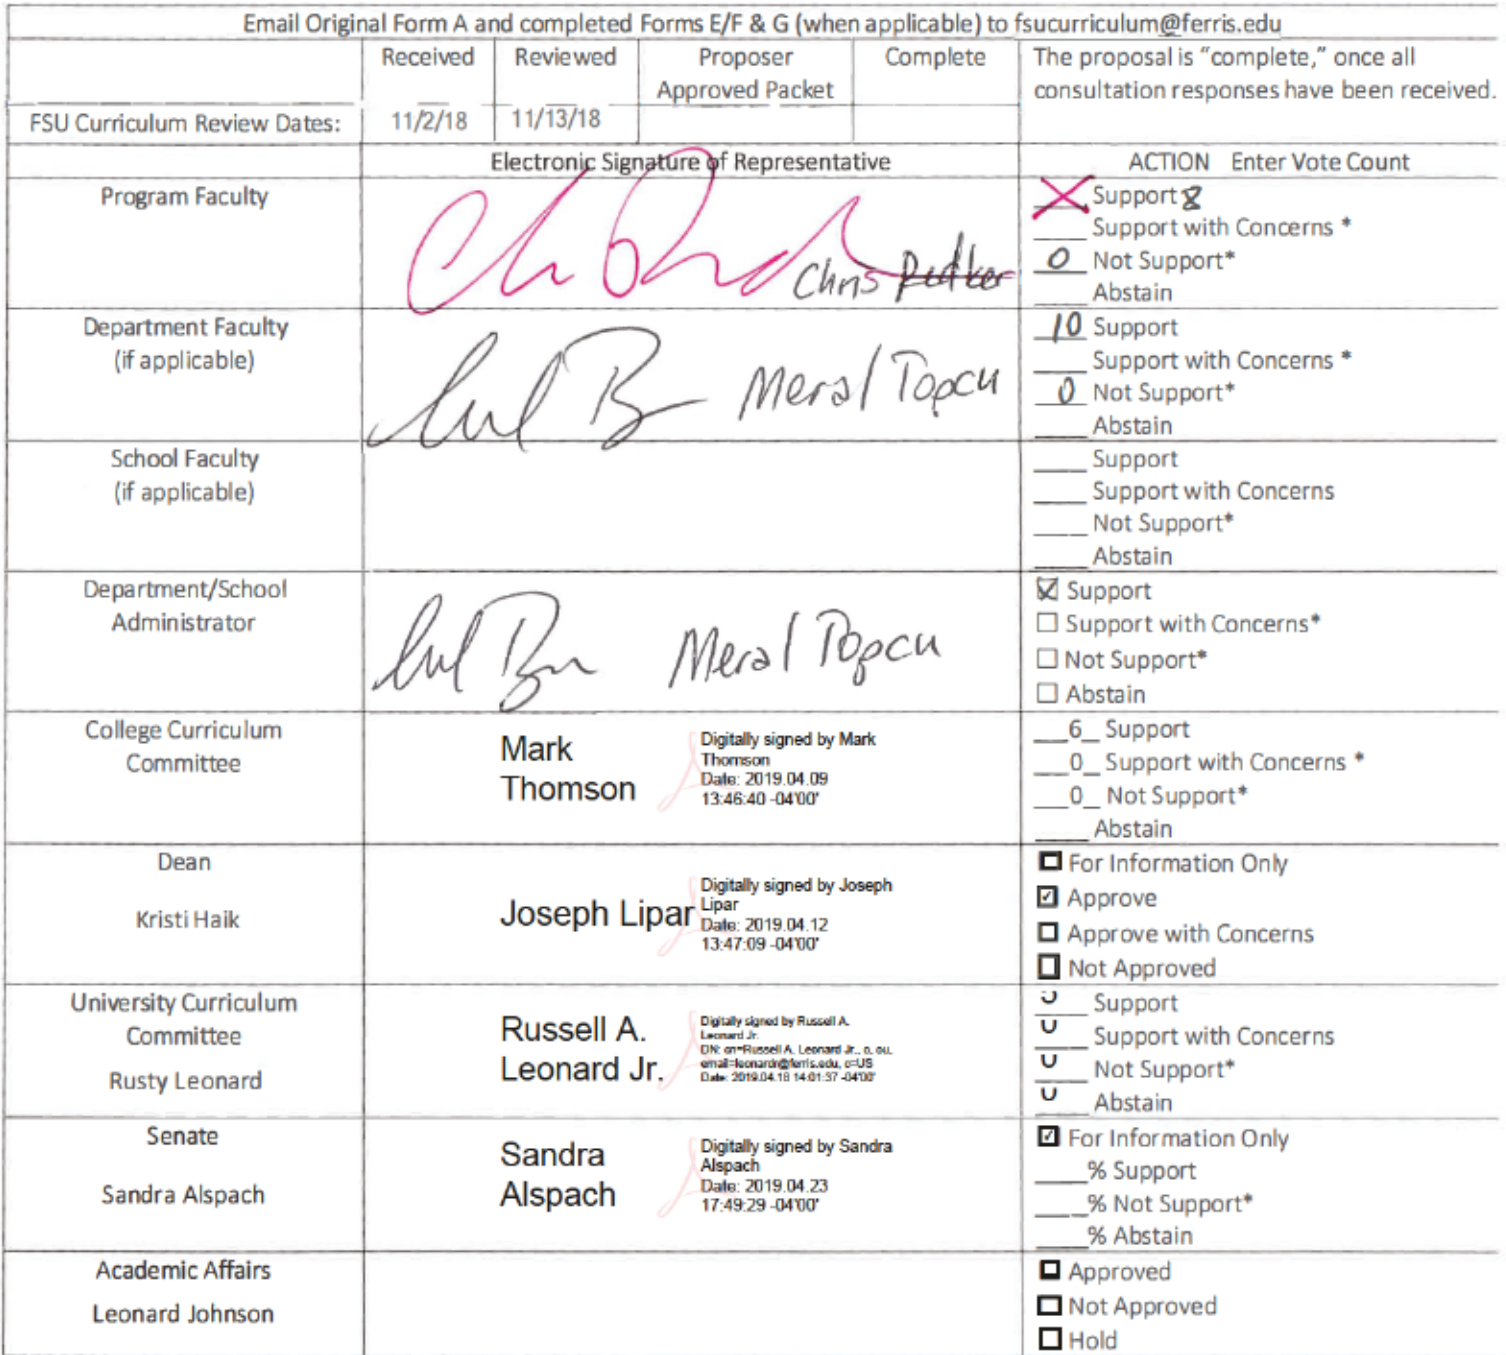 Email Original Form A and completed Forms E/F & G (when applicable) to fsucurriculum@ferris.edu
Received Reviewed Proposer Approved Packet Complete The proposal is "complete," once all consultation responses have been received.
FSU Curriculum Review Dates: 11/2/18 11/13/18
Electronic Signature of Representative ACTION Enter Vote Count
Program Faculty
Chris
Support 8
____ Support with Concerns *
0 Not Support*
____ Abstain
Department Faculty
(if applicable)
Meral Topcu
10 Support
____ Support with Concerns *
0 Not Support*
____ Abstain
School Faculty
(if applicable)
____ Support
____ Support with Concerns
____ Not Support*
____ Abstain
Department/School
Administrator
Meral Topcu
☒ Support
☐ Support with Concerns*
☐ Not Support*
☐ Abstain
College Curriculum
Committee
Mark
Thomson
Digitally signed by Mark
Thomson
Date: 2019.04.09
13:46:40 -04'00'
___6_ Support
___0_ Support with Concerns *
___0_ Not Support*
____ Abstain
Dean
Kristi Haik
Joseph Lipar
Digitally signed by Joseph
Lipar
Date: 2019.04.12
13:47:09 -04'00'
☐ For Information Only
☑ Approve
☐ Approve with Concerns
☐ Not Approved
University Curriculum
Committee
Rusty Leonard
Russell A.
Leonard Jr.
Digitally signed by Russell A.
Leonard Jr.
DN: cn=Russell A. Leonard Jr., o, ou,
email=leonardr@ferris.edu, c=US
Date: 2019.04.18 14:01:37 -04'00'
____ Support
____ Support with Concerns
____ Not Support*
____ Abstain
Senate
Sandra Alspach
Sandra
Alspach
Digitally signed by Sandra
Alspach
Date: 2019.04.23
17:49:29 -04'00'
☑ For Information Only
____% Support
____% Not Support*
____% Abstain
Academic Affairs
Leonard Johnson
☐ Approved
☐ Not Approved
☐ Hold